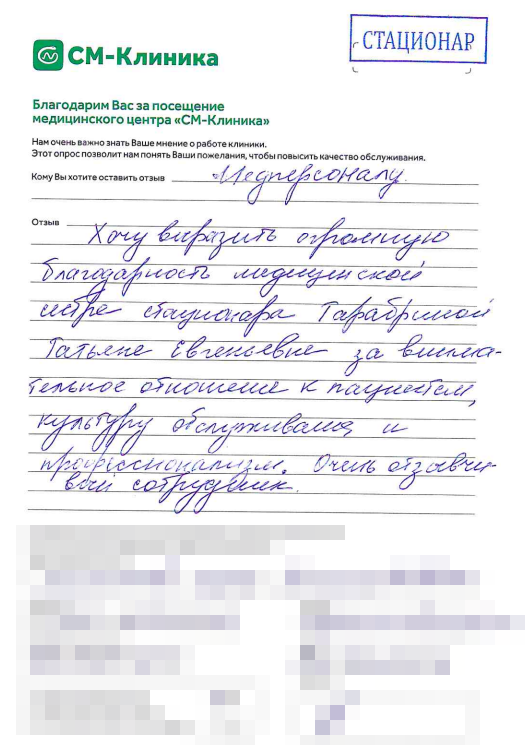 СТАЦИОНАР
СМ-Клиника
Благодарим Вас за посещение
медицинского центра «СМ-Клиника»
Нам очень важно знать Ваше мнение о работе клиники.
Этот опрос позволит нам понять Ваши пожелания, чтобы повысить качество обслуживания.
Кому Вы хотите оставить отзыв Медперсоналу.
Отзыв
Хочу выразить огромную
благодарность медицинской
сестре стационара Тарабриной
Татьяне Евгеньевне за внима-
тельное отношение к пациентам,
культуру обслуживания и
профессионализм. Очень отзывчи-
вый сотрудник.